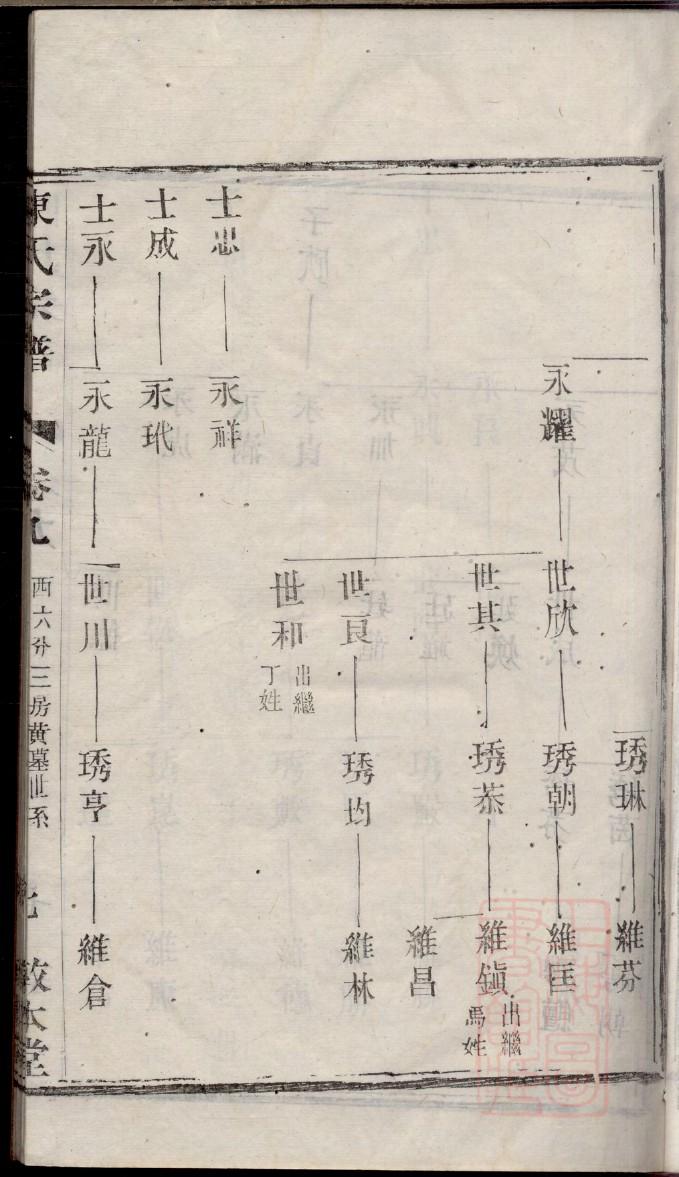 琇琳 維芬
永耀 世欣 琇朝 維匡
世其 琇恭 維鎮 出繼馬姓
維昌
世良 琇均 維林
世和 出繼丁姓
士忠 永祥
士成 永玳
士永 永龍 世川 琇亨 維倉
氏宗譜 卷九 西六分三房黄墓世系 敦本堂